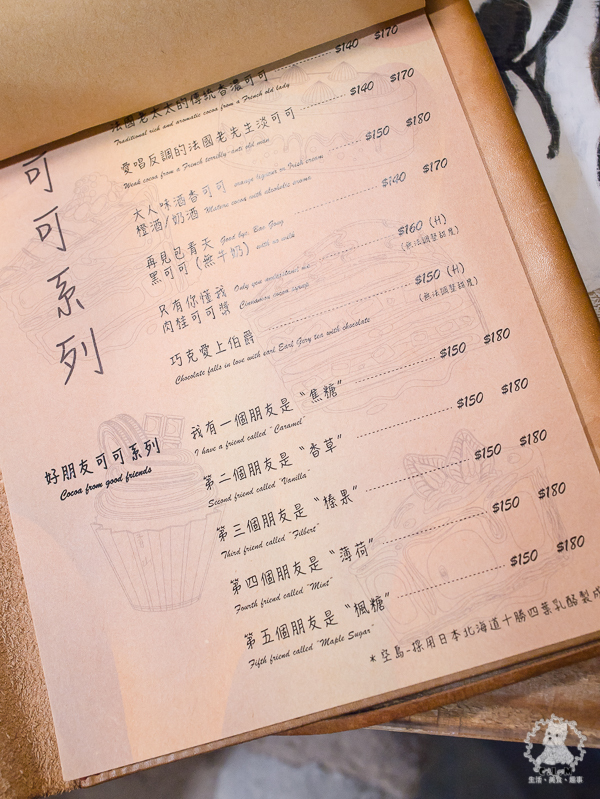 可可系列
法國老太太的傳統香濃可可 $140 $170
Traditional rich and aromatic cocoa from a French old lady
愛唱反調的法國老先生淡可可 $140 $170
Weak cocoa from a French terribly-anti old man
大人味酒香可可 orange liqueur or Irish cream $150 $180
橙酒/奶酒 Mature cocoa with alcoholic aroma
再見包青天 Good bye, Bao Zong $140 $170
黑可可 (無牛奶) with no milk
只有你懂我 Only you understand me $160 (H)
肉桂可可醬 Cinnamon cocoa syrup (無法調整甜度)
巧克愛上伯爵 $150 (H)
Chocolate falls in love with earl Earl Grey tea with chocolate (無法調整甜度)
好朋友可可系列
Cocoa from good friends
我有一個朋友是 “焦糖” $150 $180
I have a friend called “Caramel”
第二個朋友是 “香草” $150 $180
Second friend called “Vanilla”
第三個朋友是 “榛果” $150 $180
Third friend called “Filbert”
第四個朋友是 “薄荷” $150 $180
Fourth friend called “Mint”
第五個朋友是 “楓糖” $150 $180
Fifth friend called “Maple Sugar”
*空島-採用日本北海道十勝四葉乳酪製成
生活・美食・趣事